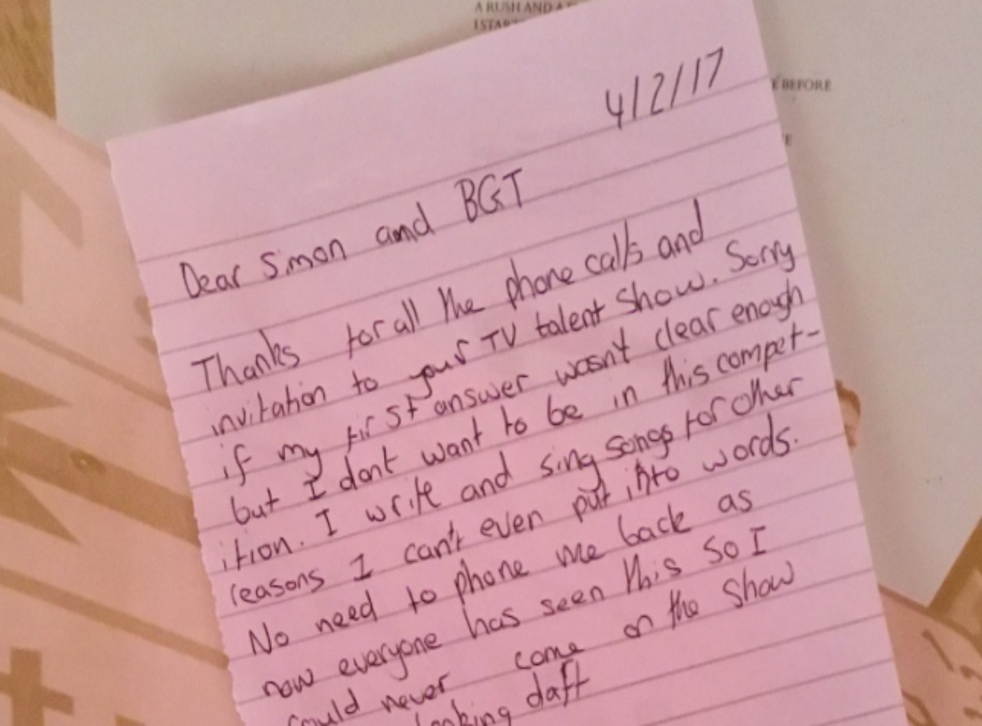 A RUSH AND A
I STAR
E BEFORE
E
4/2/17
Dear Simon and BGT
Thanks for all the phone calls and
invitation to your TV talent show. Sorry
if my first answer wasn't clear enough
but I dont want to be in this compet-
ition. I write and sing songs for other
reasons I can't even put into words.
No need to phone me back as
now everyone has seen this so I
could never come on the show
looking daft